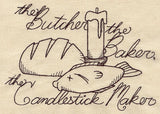 the Butcher the
Baker,
the
Candlestick Maker